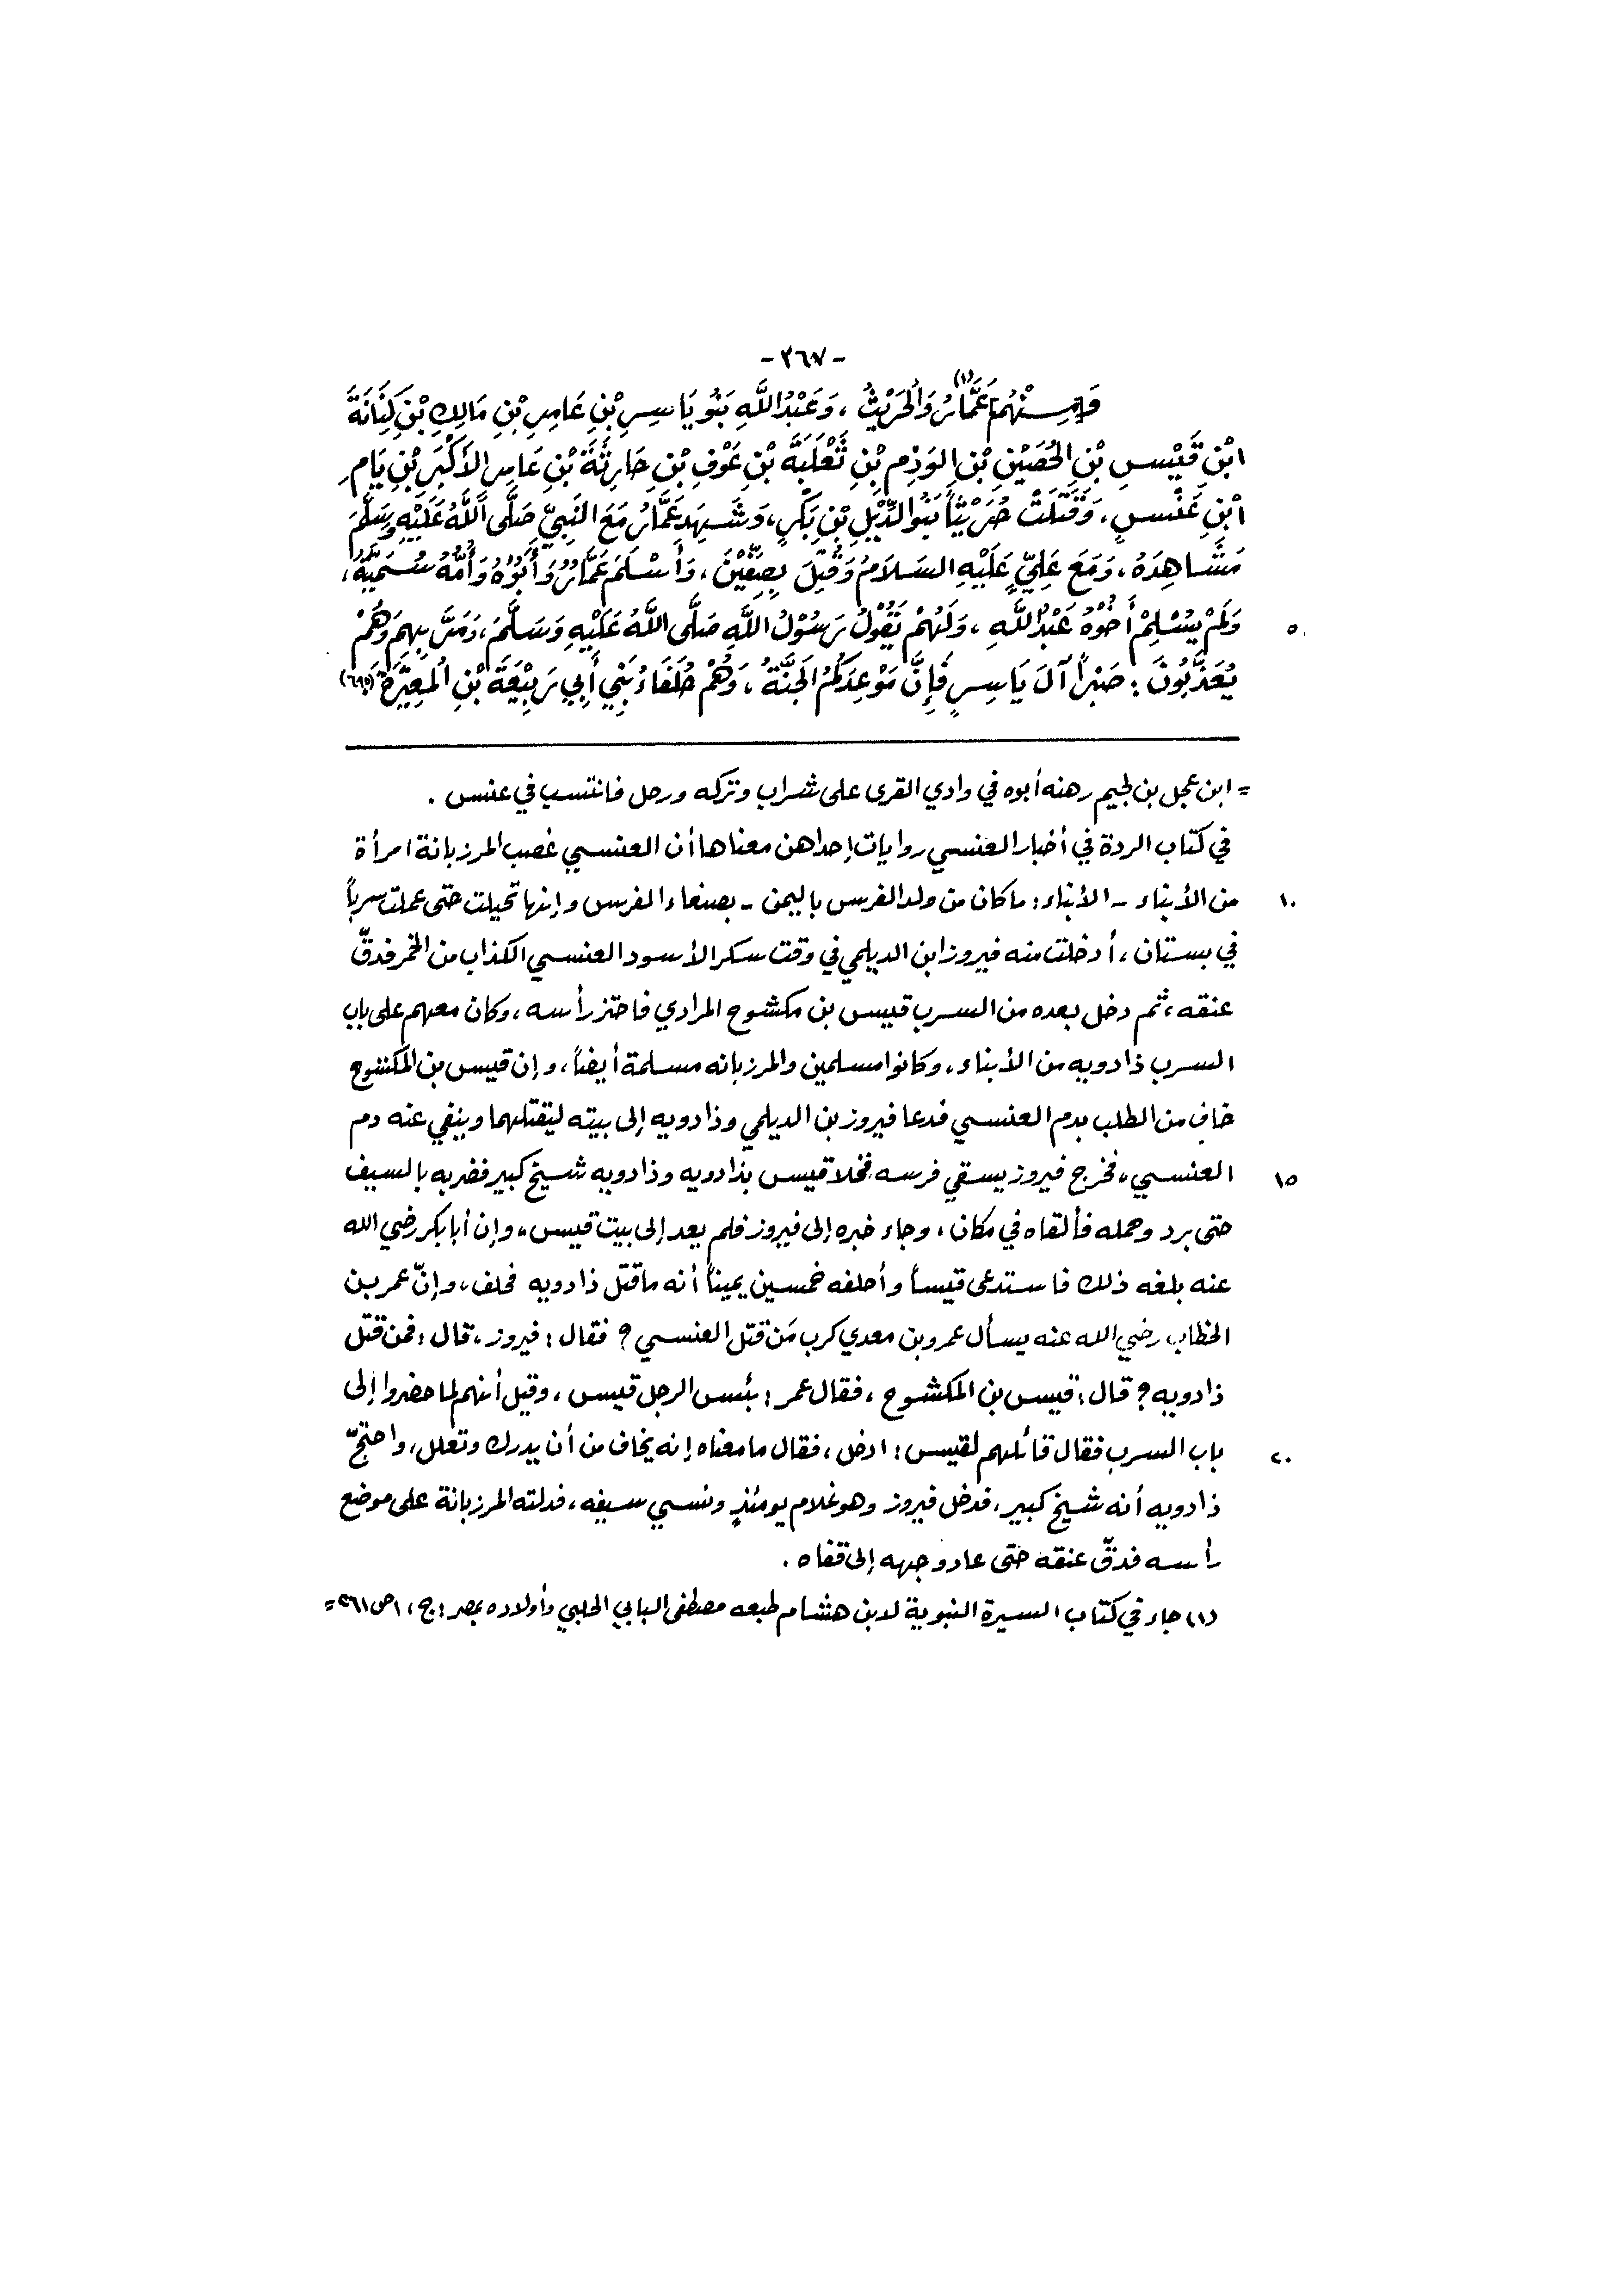 - ٣٦٧ -
وَمِنْهُم عَمَّارُ(١) وَالحُرَيْثُ ، وَعَبْدُ اللَّهِ بَنُو يَاسِرِ بْنِ عَامِرِ بْنِ مَالِكِ بْنِ كِنَانَةَ
ابْنِ قَيْسِ بْنِ الحُصَيْنِ بْنِ الوَذِمِ بْنِ ثَعْلَبَةَ بْنِ عَوْفِ بْنِ حَارِثَةَ بْنِ عَامِرِ الأَكْبَرِ بْنِ يَامِ
ابْنِ عَنْسٍ ، وَقَتَلَتْ حُرَيْثاً بَنُو الدِّيْلِ بْنِ بَكْرٍ ، وَشَهِدَ عَمَّارُ مَعَ النَبِيِّ صَلَّى اللَّهُ عَلَيْهِ وَسَلَّمَ
مَشَاهِدَهُ ، وَمَعَ عَلِيٍّ عَلَيْهِ السَلَامُ وَقُتِلَ بِصِفِّيْنَ ، وَأَسْلَمَ عَمَّارُ وَأَبُوْهُ وَأُمُّهُ سُمَيَّةُ ،
٥ وَلَمْ يُسْلِمْ أَخُوْهُ عَبْدُ اللَّهِ ، وَلَهُمْ يَقُولُ رَسُوْلُ اللَّهِ صَلَّى اللَّهُ عَلَيْهِ وَسَلَّمَ ، وَمَرَّ بِهِمْ وَهُمْ
يُعَذَّبُونَ : صَبْراً آلَ يَاسِرٍ فَإِنَّ مَوْعِدَكُمُ الجَنَّةُ ، وَهُمْ حُلَفَاءُ بَنِي أَبِي رَبِيْعَةَ بْنِ المُغِيْرَةِ
= ابن عجل بن لجيم رهنه أبوه في وادي القرى على شراب وتركه ورحل فانتسب في عنس .
في كتاب الردة في أخبار العنسي روايات إحداهن معناها أن العنسي غصب المرزبانة امرأة
١٠ من الأبناء - الأبناء : ما كان من ولد الفرس باليمن - بصنعاء الفرس وإنها تحيلت حتى عملت سرباً
في بستان ، أدخلت منه فيروز ابن الديلمي في وقت سكر الأسود العنسي الكذاب من الخمر فدقّ
عنقه ، ثم دخل بعده من السرب قيس بن مكشوح المرادي فاحتز رأسه ، وكان معهم على باب
السرب ذادويه من الأبناء ، وكانوا مسلمين والمرزبانه مسلمة أيضاً ، وإن قيس بن المكشوح
خاف من الطلب بدم العنسي فدعا فيروز بن الديلمي وذادويه إلى بيته ليقتلهما وينفي عنه دم
١٥ العنسي ، فخرج فيروز يسقي فرسه فخلا قيس بذادويه وذادويه شيخ كبير فضربه بالسيف
حتى برد وحمله فألقاه في مكان ، وجاء خبره إلى فيروز فلم يعد إلى بيت قيس ، وإن أبا بكر رضي الله
عنه بلغه ذلك فاستدعى قيساً وأحلفه خمسين يميناً أنه ما قتل ذادويه فحلف ، وإنّ عمر بن
الخطاب رضي الله عنه يسأل عمرو بن معدي كرب مَن قتل العنسي ؟ فقال : فيروز ، قال : فمن قتل
ذادويه ؟ قال : قيس بن المكشوح ، فقال عمر : بئس الرجل قيس ، وقيل أنهم لما حضروا إلى
٢٠ باب السرب فقال قائلهم لقيس : ادخل ، فقال ما معناه إنه يخاف من أن يدرك وتعلل ، واحتجّ
ذادويه أنه شيخ كبير ، فدخل فيروز وهو غلام يومئذٍ ونسي سيفه ، فدلته المرزبانة على موضع
رأسه فدقّ عنقه حتى عاد وجهه إلى قفاه .
(١) جاء في كتاب السيرة النبوية لابن هشام طبعه مصطفى البابي الحلبي وأولاده بمصر : ج ، ١ ص ٢٦١ =